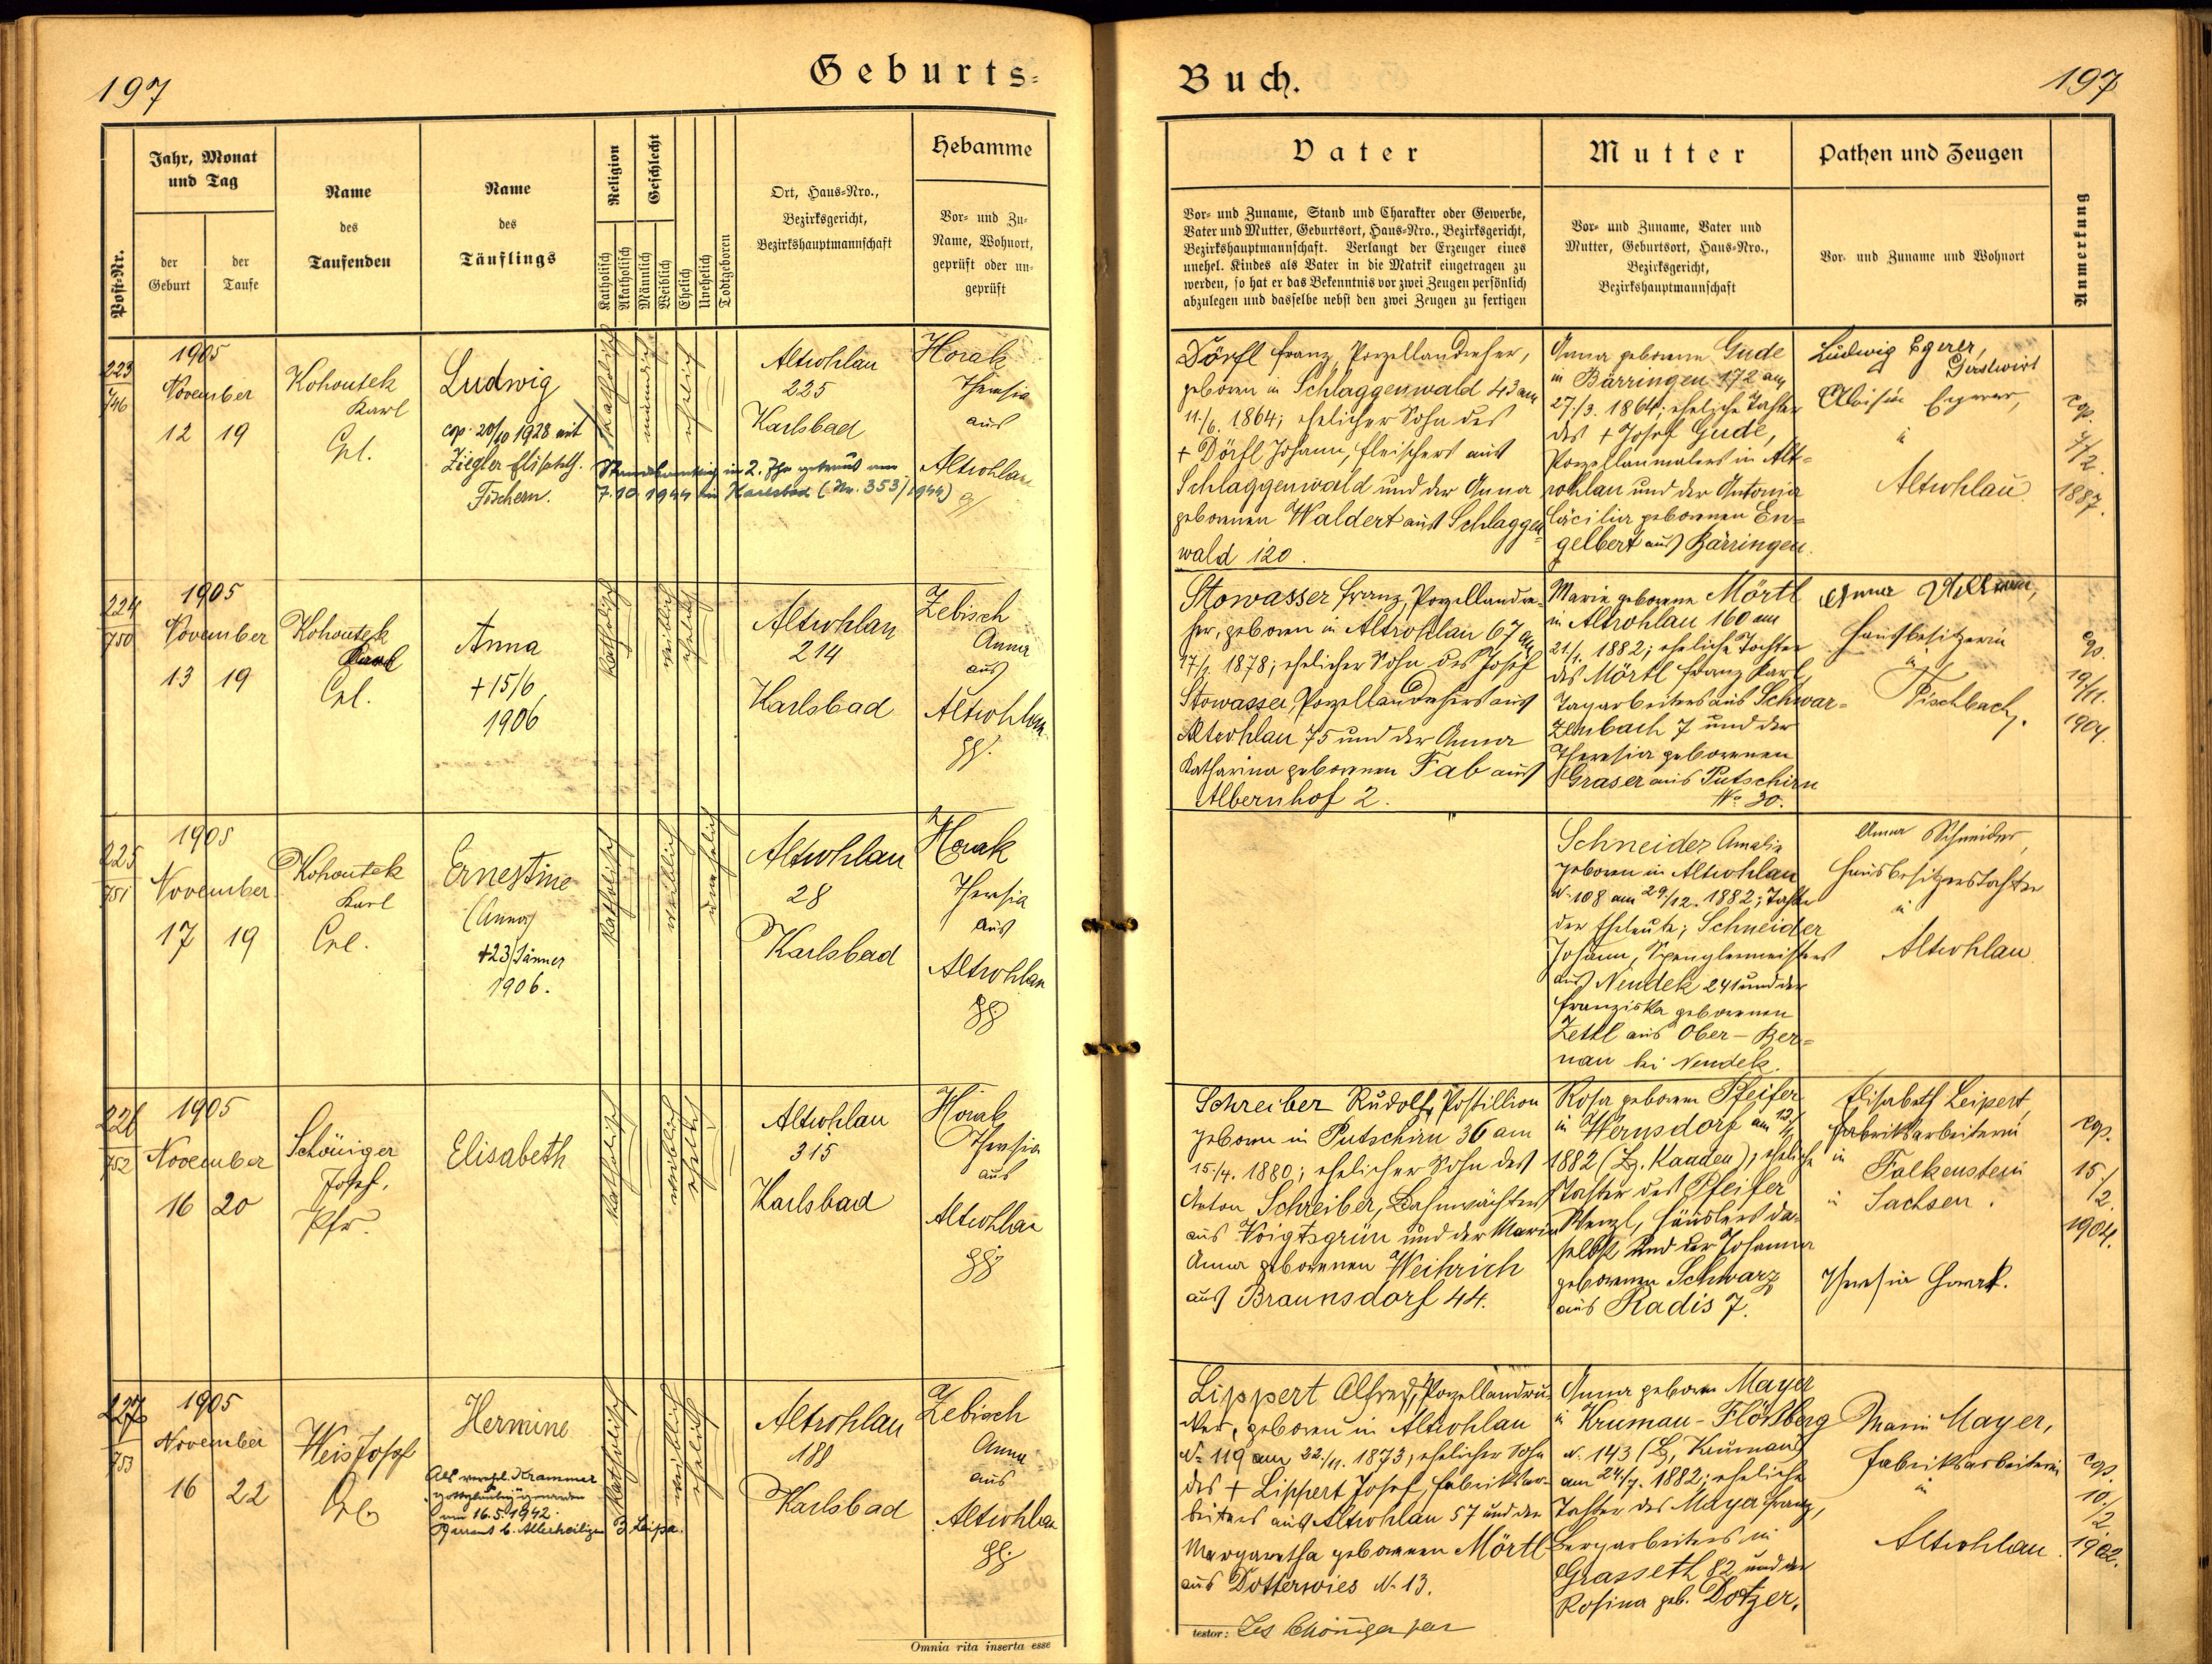 197
Geburts-
Buch.
197
Post-Nr.
Jahr, Monat
und Tag
der
Geburt
der
Taufe
Name
des
Taufenden
Name
des
Täuflings
Religion
Katholisch
Akatholisch
Geschlecht
Männlich
Weiblich
Ehelich
Unehelich
Todtgeboren
Ort, Haus-Nro.,
Bezirksgericht,
Bezirkshauptmannschaft
Hebamme
Vor- und Zu-
Name, Wohnort,
geprüft oder un-
geprüft
Vater
Vor- und Zuname, Stand und Charakter oder Gewerbe,
Vater und Mutter, Geburtsort, Haus-Nro., Bezirksgericht,
Bezirkshauptmannschaft. Verlangt der Erzeuger eines
unehel. Kindes als Vater in die Matrik eingetragen zu
werden, so hat er das Bekenntnis vor zwei Zeugen persönlich
abzulegen und dasselbe nebst den zwei Zeugen zu fertigen
Mutter
Vor- und Zuname, Vater und
Mutter, Geburtsort, Haus-Nro.,
Bezirksgericht,
Bezirkshauptmannschaft
Pathen und Zeugen
Vor- und Zuname und Wohnort
Anmerkung
223
746
1905
November
12 19
Kohoutek
Karl
Cpl.
Ludwig
cop. 20/10 1928 mit
Ziegler Elisabeth
Fischern.
katholisch
männlich
ehelich
Standesamtlich in 2. Ehe getraut am
7.10.1944 in Karlsbad (Nr. 353/1944)
Altrohlau
225
Karlsbad
Horak
Theresia
aus
Altrohlau
Dörfl Franz, Porzellandreher,
geboren in Schlaggenwald 43 am
11./6. 1864; ehelicher Sohn des
+ Dörfl Johann, Fleischers aus
Schlaggenwald und der Anna
geborenen Waldert aus Schlaggen-
wald 120.
Anna geborene Gude
in Bärringen 172 am
27./3. 1864; eheliche Tochter
des + Josef Gude,
Porzellanmalers in Alt-
rohlau und der Antonia
Cäcilia geborenen En-
gelbert aus Bärringen.
Ludwig Egerer,
Gastwirt
Aloisia Egerer,
in
Altrohlau
cop.
/2.
1887.
224
750
1905
November
13 19
Kohoutek
Karl
Cpl.
Anna
+ 15/6
1906
katholisch
weiblich
ehelich
Altrohlau
214
Karlsbad
Zebisch
Anna
aus
Altrohlau
gg.
Stowasser Franz, Porzellandre-
her, geboren in Altrohlau 67 am
17/1. 1878; ehelicher Sohn des Josef
Stowasser, Porzellandrehers aus
Altrohlau 75 und der Anna
Katharina geborenen Fab aus
Albernhof 2.
Marie geborene Mörtl
in Altrohlau 160 am
21./1. 1882; eheliche Tochter
des Mörtl Franz Karl,
Tagarbeiters aus Schwar-
zenbach 7 und der
Theresia geborenen
Graser aus Putschirn
No 30.
Anna
Hausbesitzerin
in
Fischbach.
cop.
19/11.
1904.
225
751
1905
November
17 19
Kohoutek
Karl
Cpl.
Ernestine
(Anna)
+ 23/Jänner
1906.
katholisch
weiblich
unehelich
Altrohlau
28
Karlsbad
Horak
Theresia
aus
Altrohlau
gg
Schneider Amalia
geboren in Altrohlau
No 108 am 29/12. 1882; Tochter
der Eheleute; Schneider
Johann, Spenglermeisters
aus Neudek 241 und der
Franziska geborenen
Zettl aus Ober-Ber-
nau bei Neudek.
Anna Schneider,
Hausbesitzerstochter
in
Altrohlau
226
752
1905
November
16 20
Schöniger
Josef,
Pfr.
Elisabeth
katholisch
weiblich
ehelich
Altrohlau
315
Karlsbad
Horak
Theresia
aus
Altrohlau
gg
Schreiber Rudolf, Postillion
geboren in Putschirn 36 am
15./4. 1880; ehelicher Sohn des
Anton Schreiber, Bahnwächters
aus Voigtsgrün und der Maria
Anna geborenen Weihrich
aus Braunsdorf 44.
Rosa geborene Pfeifer
in Wernsdorf am
1882 (Bz. Kaaden); eheliche
Tochter des Pfeifer
Wenzl, Häuslers da-
selbst und der Johanna
geborenen Schwarz
aus Radis 7.
Elisabeth Leipert,
Fabriksarbeiterin
in
Falkenstein
in Sachsen.
Theresia Horak.
cop.
15./
/2.
1904.
227
753
1905
November
16 22
Weis Josef
Cpl.
Hermine
Als verehl. Krammer
"gottgläubig" geworden
am 16.5.1942.
Pfarramt b. Allerheiligen B. Leipa.
katholisch
weiblich
ehelich
Altrohlau
188
Karlsbad
Zebisch
Anna
aus
Altrohlau
gg
Lippert Alfred, Porzellandru-
cker, geboren in Altrohlau
No 119 am 22./11. 1873; ehelicher Sohn
des + Lippert Josef, Fabriksar-
beiters aus Altrohlau 57 und der
Margaretha geborenen Mörtl
aus Dotterwies No 13.
Anna geborene Mayer
in Krumau-Flößberg
No. 143 (Bz. Krumau)
am 24/7. 1882; eheliche
Tochter des Mayer Franz,
Bergarbeiters in
Grasseth 82 und der
Rosina geb. Dotzer.
Marie Mayer,
Fabriksarbeiterin
in
Altrohlau.
cop.
10./
/2.
1902.
Omnia rita inserta esse
testor: Jos Schöniger par